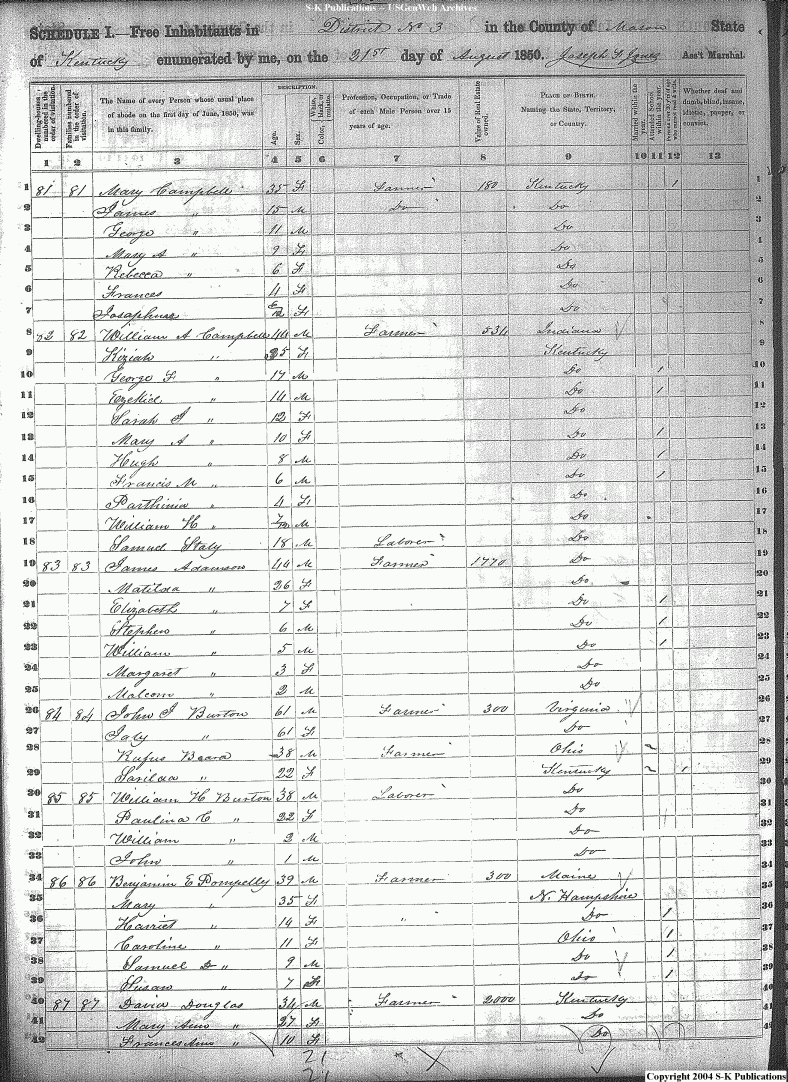 S-K Publications -- USGenWeb Archives
SCHEDULE I.—Free Inhabitants in District No 3 in the County of Mason State
of Kentucky enumerated by me, on the 21st day of August 1850. Joseph F Jones Ass't Marshal.
Dwelling-houses numbered in the order of visitation.
Families numbered in the order of visitation.
The Name of every Person whose usual place of abode on the first day of June, 1850, was in this family.
DESCRIPTION.
Age.
Sex.
Color, White, black, or mulatto.
Profession, Occupation, or Trade of each Male Person over 15 years of age.
Value of Real Estate owned.
PLACE OF BIRTH. Naming the State, Territory, or Country.
Married within the year.
Attended School within the year.
Whether deaf and dumb, blind, insane, idiotic, pauper, or convict.
1 2 3 4 5 6 7 8 9 10 11 12 13
1 81 81 Mary Campbell 35 F Farmer 180 Kentucky 1 1
2 James " 15 M Do Do 2
3 George " 11 M Do 3
4 Mary A " 9 F Do 4
5 Rebecca " 6 F Do 5
6 Frances 4 F Do 6
7 Josaphine F Do 7
8 82 82 William A Campbell 44 M Farmer 534 Indiana 8
9 Keziah " 35 F Kentucky 9
10 George F " 17 M Do 1 10
11 Ezekiel " 14 M Do 1 11
12 Sarah J " 12 F Do 12
13 Mary A " 10 F Do 1 13
14 Hugh " 8 M Do 1 14
15 Francis M " 6 M Do 1 15
16 Parthinia " 4 F Do 16
17 William H " 7/12 M Do 17
18 Samuel Staly 18 M Laborer Do 18
19 83 83 James Adamson 44 M Farmer 1770 Do 19
20 Matilda " 26 F Do 20
21 Elizabeth " 7 F Do 1 21
22 Stephen " 6 M Do 1 22
23 William " 5 M Do 1 23
24 Margaret " 3 F Do 24
25 Malcom " 2 M Do 25
26 84 84 John J Burton 61 M Farmer 300 Virginia 26
27 " 61 F Do 27
28 Rufus Beard 38 M Farmer Ohio 28
29 Sarilda " 22 F Kentucky 1 29
30 85 85 William H Burton 38 M Laborer Do 30
31 Paulina C " 22 F Do 31
32 William " 2 M Do 32
33 John " 1 M Do 33
34 86 86 Benjamin E Pompelly 39 M Farmer 300 Maine 34
35 Mary " 35 F N. Hampshire 35
36 Harriet " 14 F " Do 1 36
37 Caroline " 11 F Ohio 1 37
38 Samuel D " 9 M Do 1 38
39 Susan " 7 F Do 1 39
40 87 87 David Douglas 34 M Farmer 2000 Kentucky 40
41 Mary Ann " 27 F Do 41
42 Frances Ann " 10 F Do 42
21
21
Copyright 2004 S-K Publications